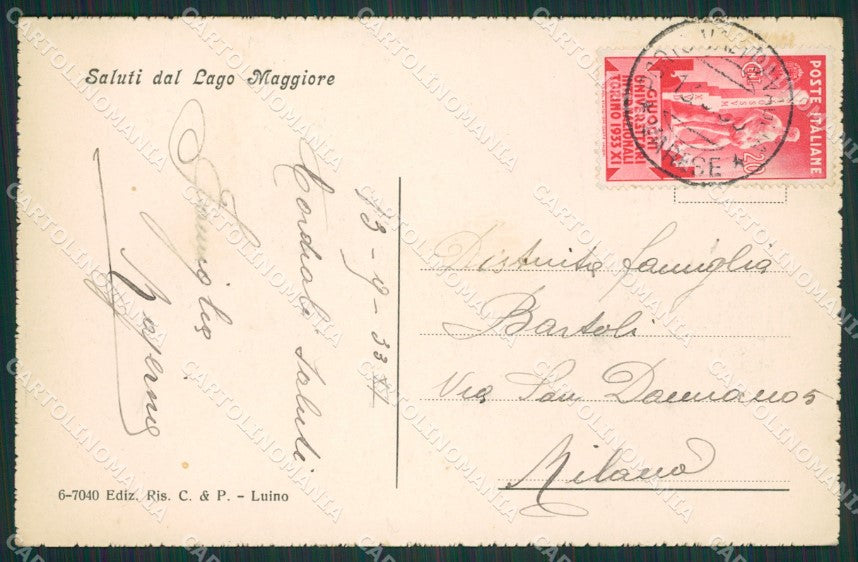 Saluti dal Lago Maggiore
13-9-33 XI
Cordiali Saluti
Famiglia
6-7040 Ediz. Ris. C. & P. - Luino
POSTE ITALIANE
GIUOCHI
UNIVERSITARI
INTERNAZIONALI
TORINO 1933 XI
20
VARESE
Distinta famiglia
Bartoli
Via San Damiano 5
Milano
CARTOLINOMANIA